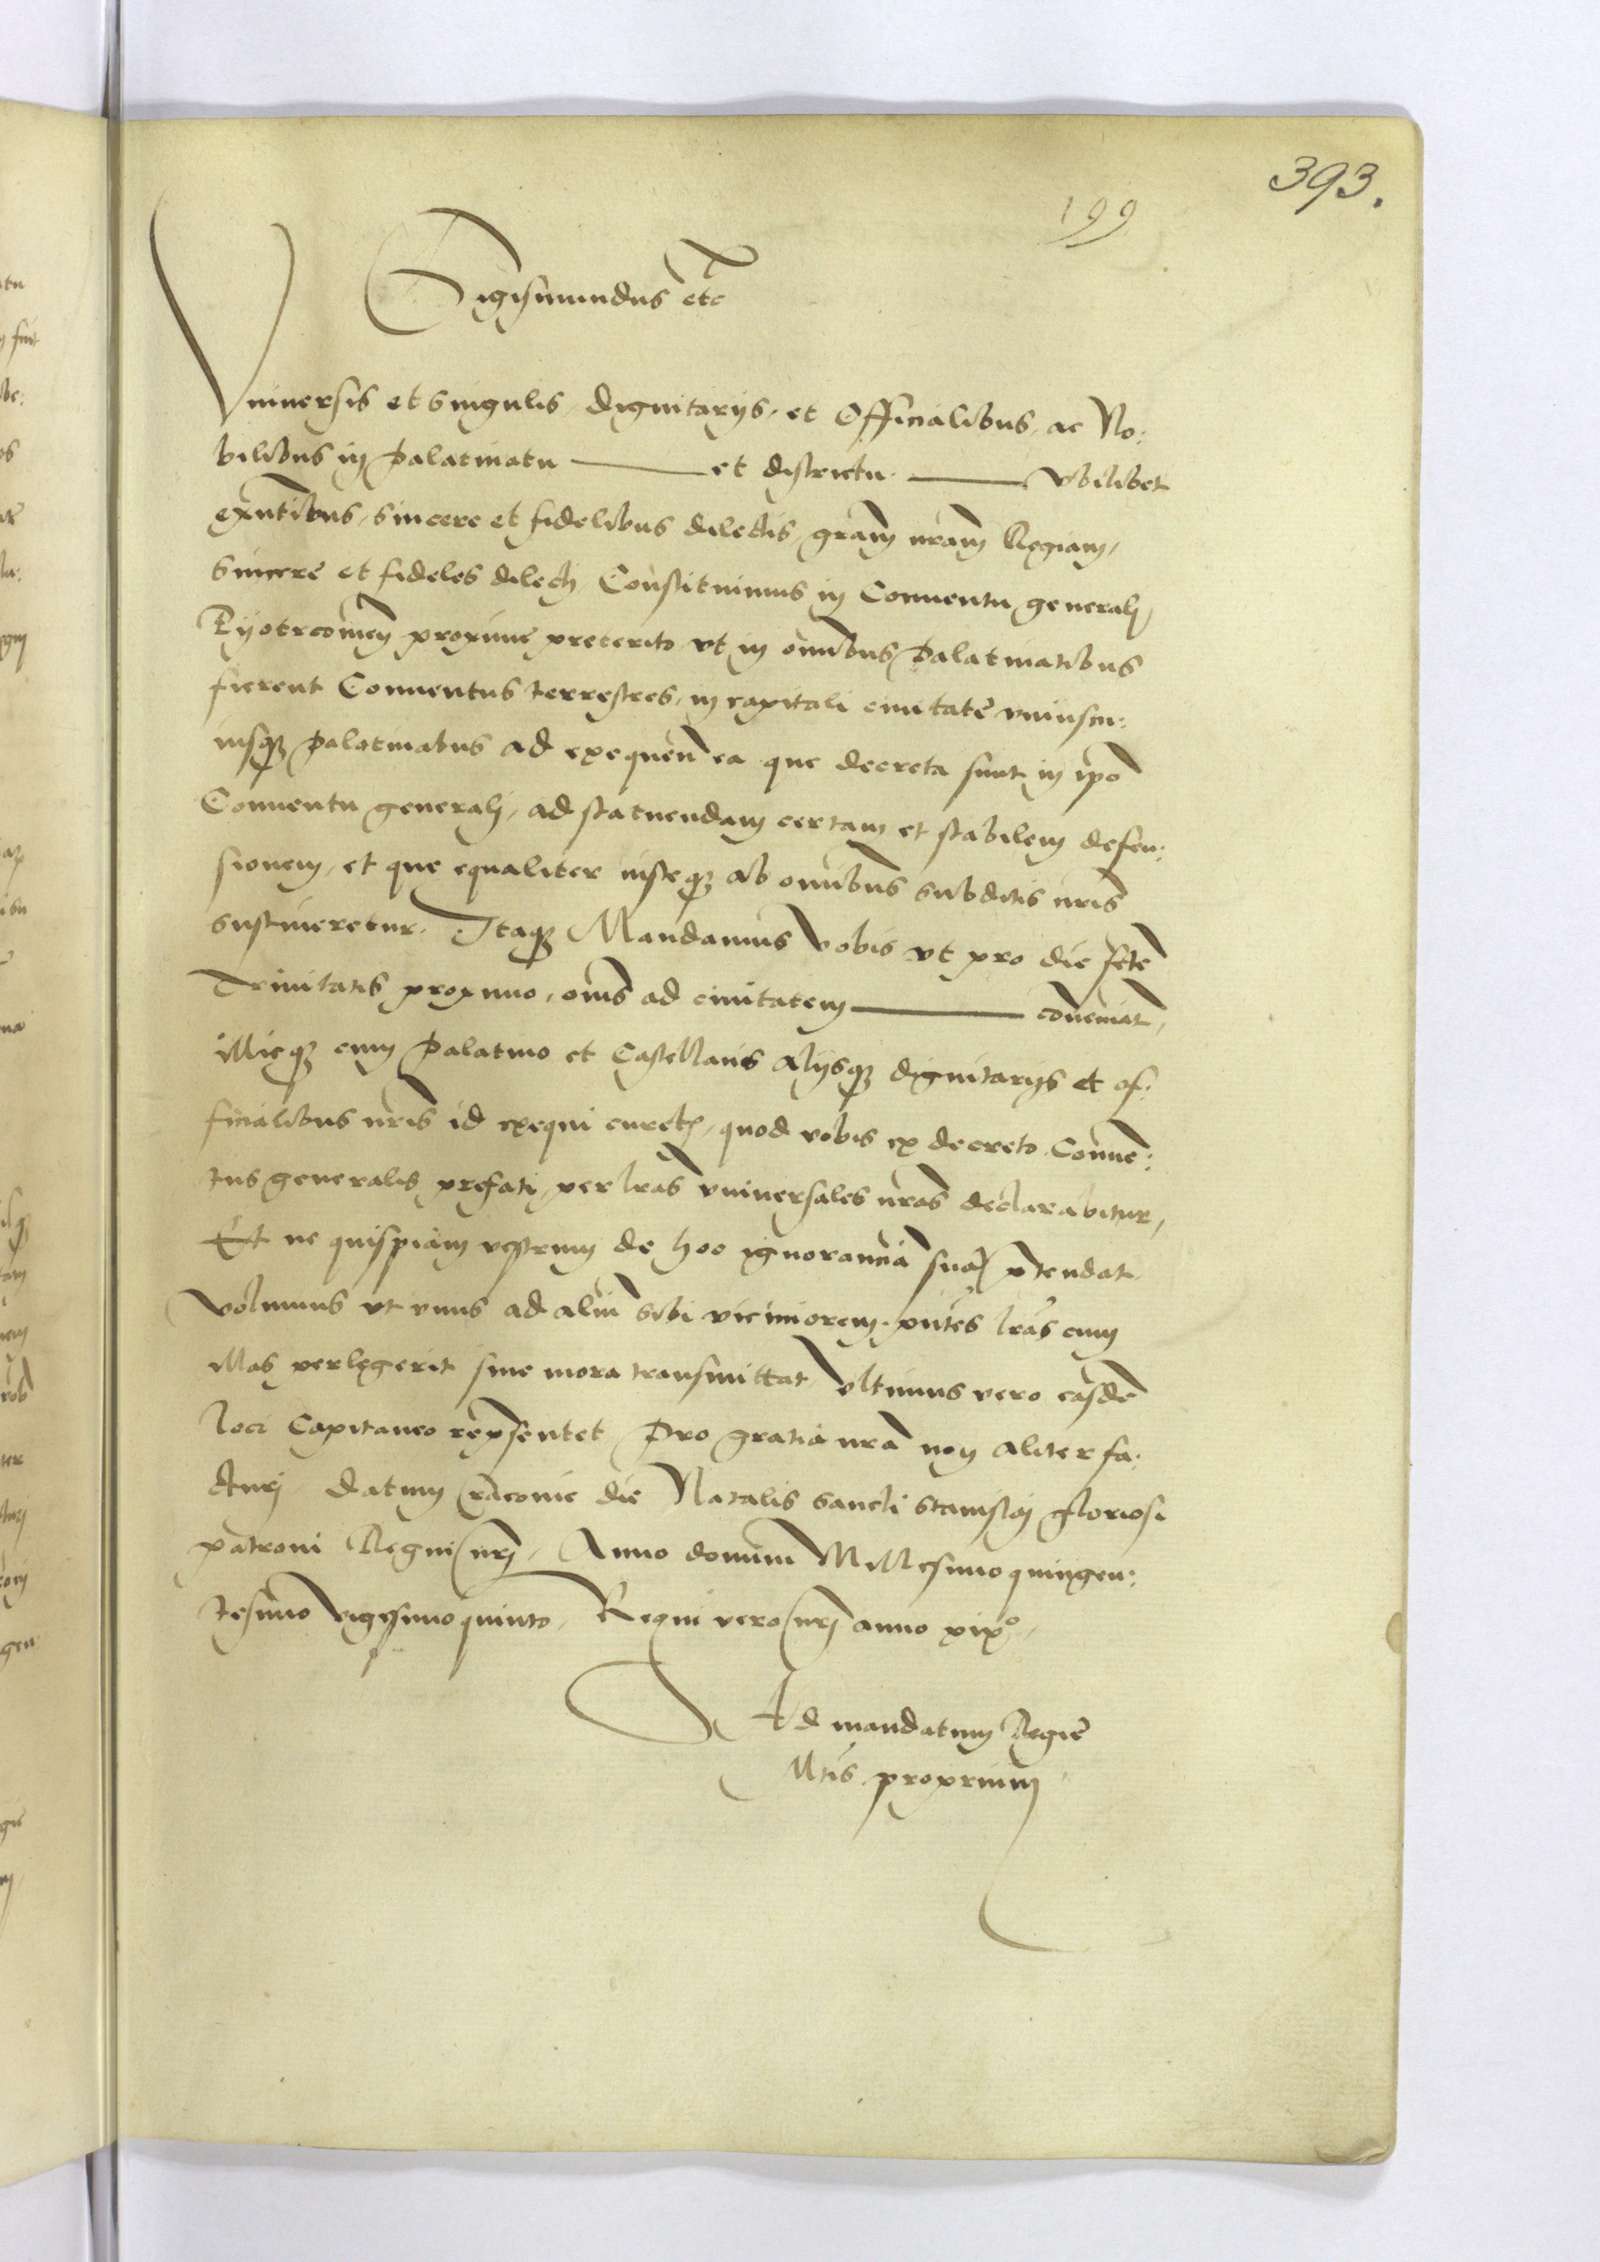 393.
199
Sigismundus etc
Vniuersis et singulis, dignitarijs, et Officialibus, ac No:
bilibus in Palatinatu —— et districtu —— vbilibet
exntibus, sincere et fidelibus dilectis, gram nram Regiam,
Sincere et fideles dilecti, Constituimus in Conuentu generali
Pyotrcouien proxime preterito vt in omibus Palatinatibus
fierent Conuentus terrestres, in capitali ciuitate vniuscu:
iusq Palatinatus ad exequen ea que decreta sunt in ipo
Conuentu generali, ad statuendam certam et stabilem defen:
sionem, et que equaliter iusteq ab omibus subditis nris
sustineretur. Itaq Mandamus vobis vt pro die scte
Trinitatis proximo, oms ad ciuitatem —— conueniat,
illicq cum Palatino et Castellanis alijsq dignitarijs et of:
ficialibus nris id exequi curetis, quod vobis ex decreto Conuen:
tus generalis prefati, per lras vniuersales nras declarabitur,
Et ne quispiam vestrum de hoc ignorancia sua ptendat
volumus vt vnus ad aliu sibi viciniorem pntes lras cum
illas perlegerit sine mora transmittat, vltimus vero easde
loci Capitaneo repsentet Pro gratia nra non aliter fa:
cturi. Datum Cracouie die Natalis sancti Stanislai gloriosi
patroni Regni nri, Anno domini Millesimo quingen:
tesimo vigesimo quinto, Regni vero nri anno xix°,
Ad mandatum Regie
Mtis proprium